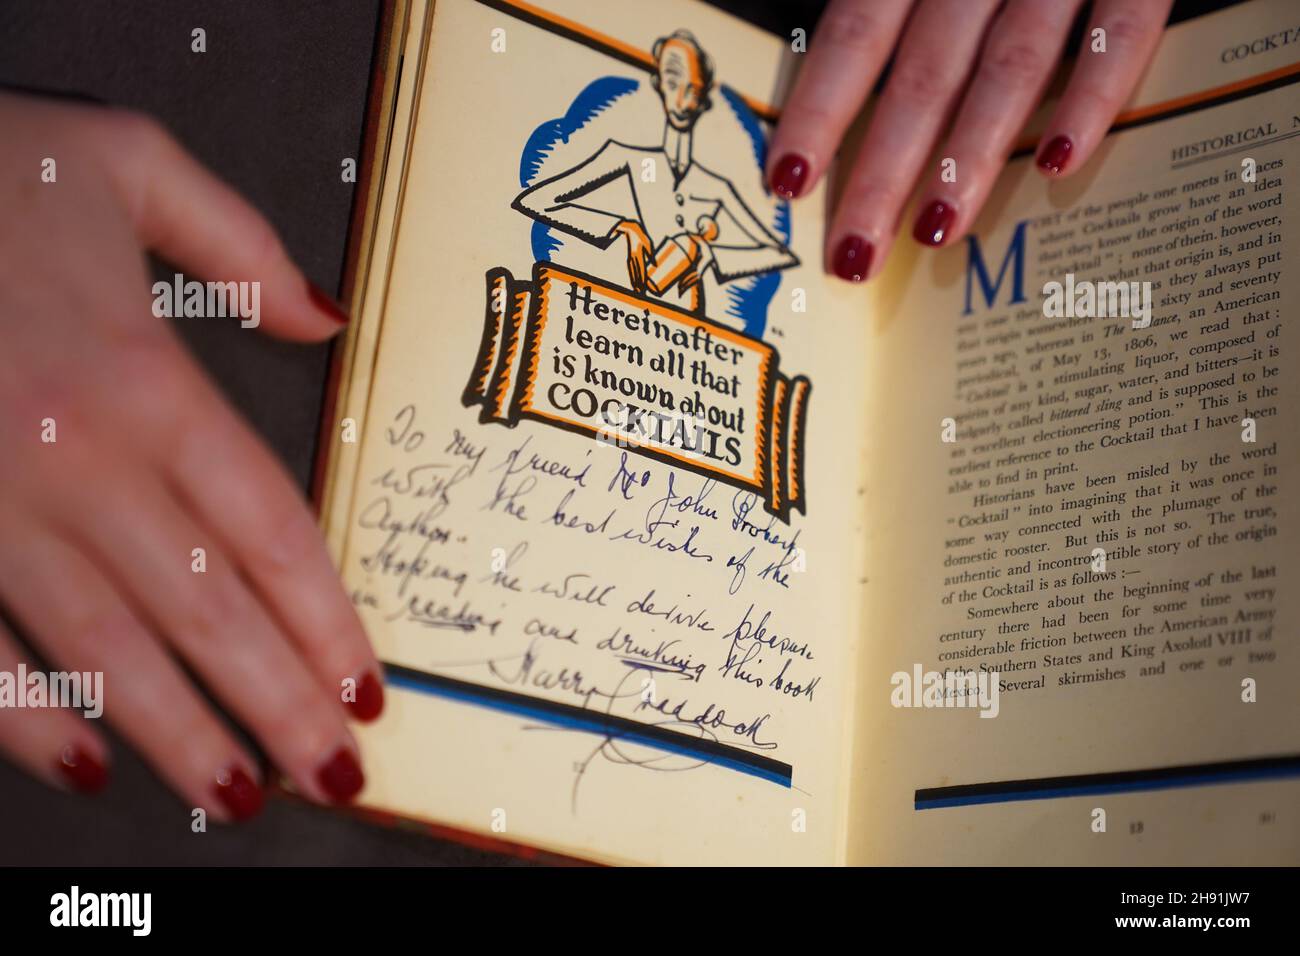 Hereinafter
learn all that
is known about
COCKTAILS
To my friend Mr John
with the best wishes of the
Author.
Hoping he will derive pleasure
in reading and drinking this book
Harry Craddock
HISTORICAL N
MOST of the people one meets in places
where Cocktails grow have an idea
that they know the origin of the word
"Cocktail"; none of them, however,
to what that origin is, and in
any case as they always put
that origin somewhere sixty and seventy
years ago, whereas in The Balance, an American
periodical, of May 13, 1806, we read that:
"Cocktail is a stimulating liquor, composed of
spirits of any kind, sugar, water, and bitters—it is
vulgarly called bittered sling and is supposed to be
an excellent electioneering potion." This is the
earliest reference to the Cocktail that I have been
able to find in print.
Historians have been misled by the word
"Cocktail" into imagining that it was once in
some way connected with the plumage of the
domestic rooster. But this is not so. The true,
authentic and incontrovertible story of the origin
of the Cocktail is as follows:—
Somewhere about the beginning of the last
century there had been for some time very
considerable friction between the American Army
of the Southern States and King Axolotl VIII of
Mexico. Several skirmishes and one or two
13
alamy
Image ID: 2H91JW7
www.alamy.com